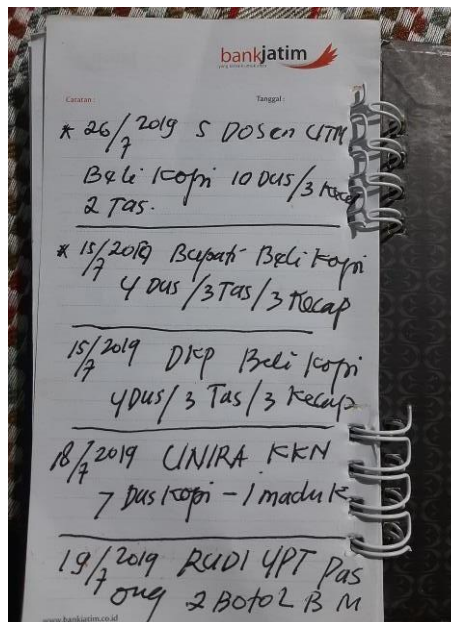 bankjatim
Catatan :
Tanggal :
* 26/7 2019 5 Dosen UTM
Beli Kopi 10 Dus/3 Kecap
2 Tas.
* 15/7 2019 Bupati Beli Kopi
4 Dus/3 Tas/3 Kecap
15/7 2019 DKP Beli Kopi
4 Dus/3 Tas/3 Kecap
18/7 2019 UNIRA KKN
7 Dus Kopi - 1 madu K
19/7 2019 RUDI UPT Pas
ong 2 Botol B M
www.bankjatim.co.id